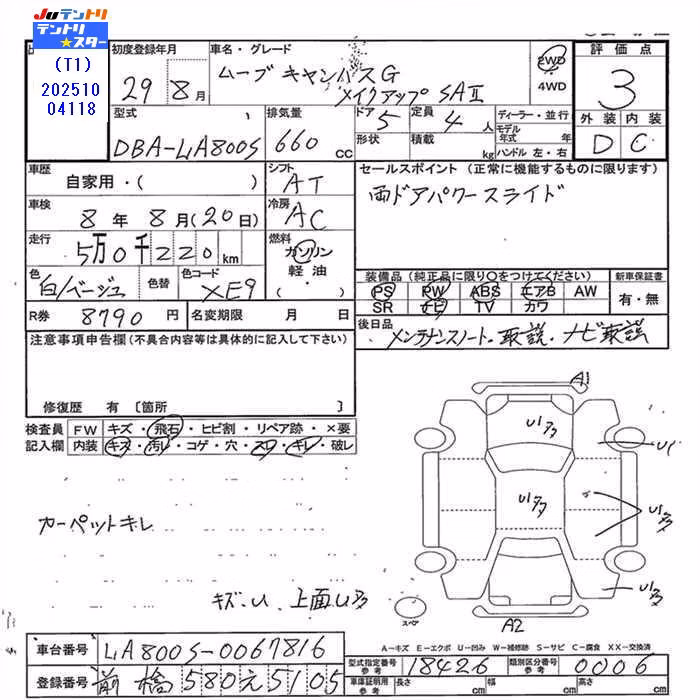 JUテントリ
テントリ★スター
(T1)
202510
04118
初度登録年月
29 8月
車名・グレード
ムーブキャンバスG
メイクアップSAⅡ
2WD
4WD
評価点
3
外装 内装
D C
型式
DBA-LA800S
排気量
660 cc
ドア 5
定員 4 人
形状
積載 kg
ディーラー・並行
モデル年式 年
ハンドル 左・右
車歴
自家用・( )
車検
8年 8月(20日)
走行
5万0千220km
色
白/ベージュ
色替
色コード
XE9
シフト
AT
冷房
AC
燃料
ガソリン
軽油
( )
セールスポイント (正常に機能するものに限ります)
両ドアパワースライド
装備品 (純正品に限り○をつけてください)
PS PW ABS エアB AW
SR ナビ TV カワ
新車保証書
有・無
R券 8790 円
名変期限 月 日
後日品
メンテナンスノート・取説・ナビ取説
注意事項申告欄(不具合内容等は具体的に記入して下さい)
修復歴 有 〔箇所 〕
検査員 FW キズ・飛石・ヒビ割・リペア跡・×要
記入欄 内装 キズ・汚レ・コゲ・穴・スレ・キレ・破レ
カーペットキレ
キズ・U 上面U多
A1
U1多
U1
U1多
U1多
U1多
スペア
A2
A-キズ E-エクボ U-凹み W-補修跡 S-サビ C-腐食 XX-交換済
車台番号 LA800S-0067816
登録番号 前橋 580え5105
型式指定番号 参考 18426
類別区分番号 参考 0006
車庫証明用 参考
長さ cm
幅 cm
高さ cm